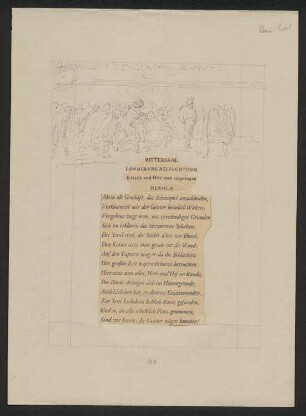 RITTERSAAL
DÄMMERNDE BELEUCHTUNG
Kaiser und Hof sind eingezogen
HEROLD
Mein alt Geschäft, das Schauspiel anzukünden,
Verkümmert mir der Geister heimlich Walten;
Vergebens wagt man, aus verständigen Gründen
Sich zu erklären das verworrene Schalten.
Die Sessel sind, die Stühle schon zur Hand;
Den Kaiser setzt man grade vor die Wand;
Auf den Tapeten mag er da die Schlachten
Der großen Zeit bequemlichstens betrachten.
Hier sitzt nun alles, Herr und Hof im Runde,
Die Bänke drängen sich im Hintergrunde;
Auch Liebchen hat, in düstern Geisterstunden,
Zur Seite Liebchens lieblich Raum gefunden.
Und so, da alle schicklich Platz genommen,
Sind wir bereit; die Geister mögen kommen!